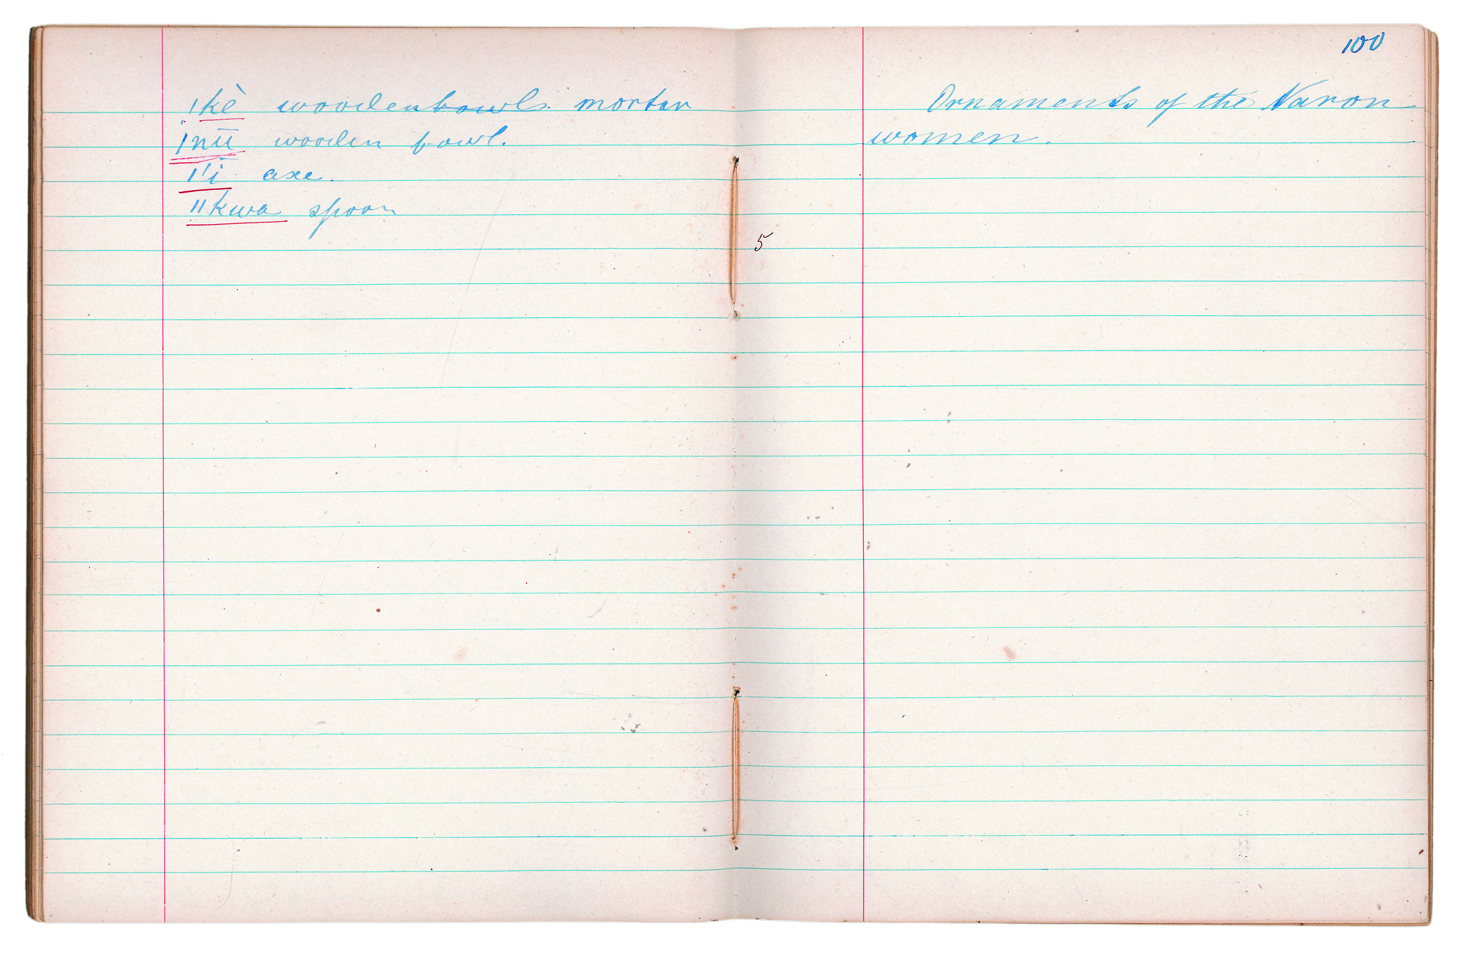 ǀkè wooden bowls. mortar
ǀnū wooden bowl.
ǀ'i axe.
ǁkwa spoon
5
100
Ornaments of the Naron
women.